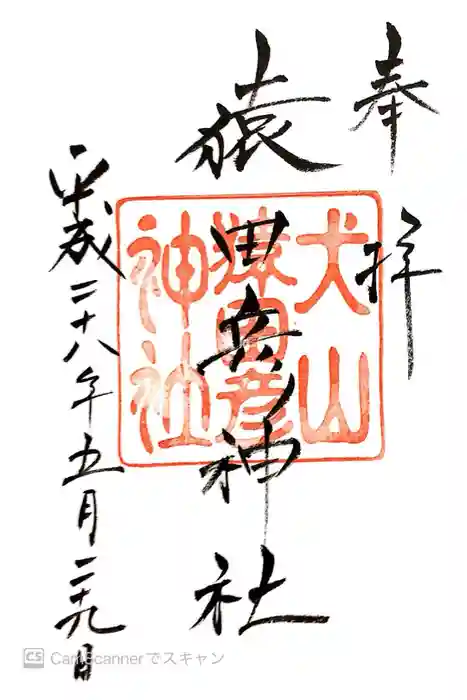 奉拝
猿田彦神社
犬山
猿田彦
神社
平成二十八年五月二十九日
CS CamScannerでスキャン